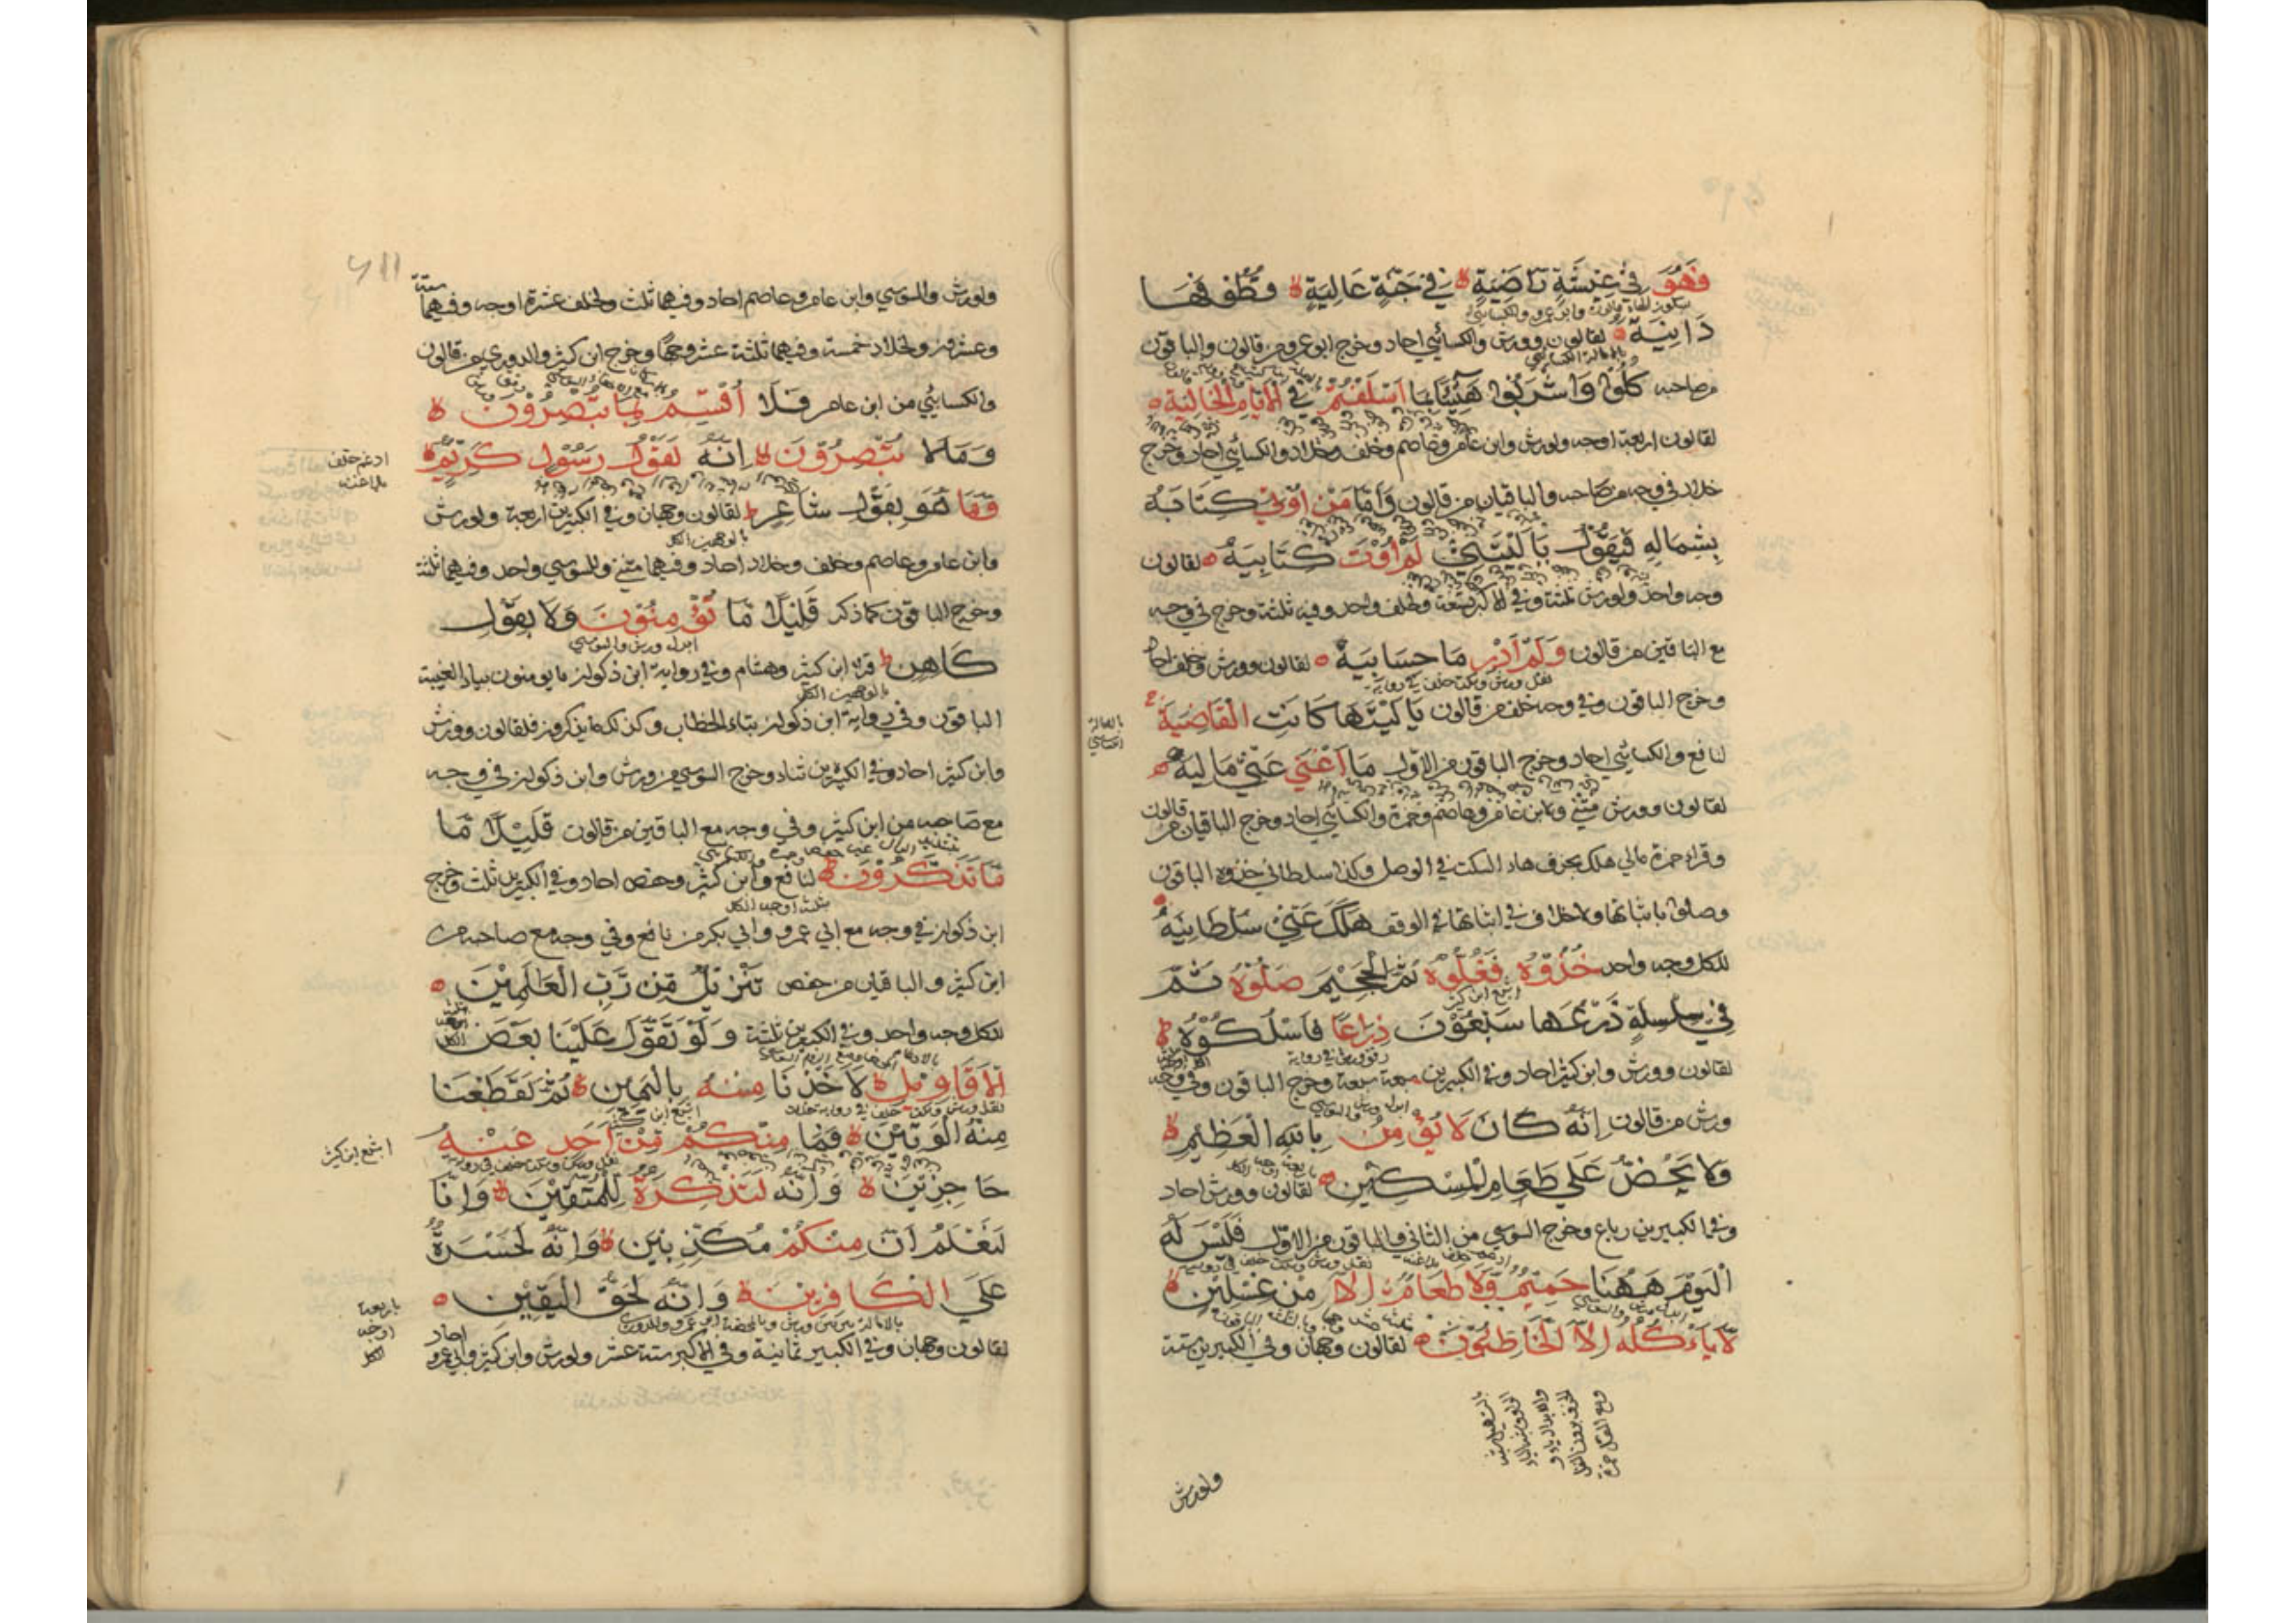 فَهُوَ فِي عِيشَةٍ رَاضِيَةٍ لا فِي جَنَّةٍ عَالِيَةٍ لا قُطُوفُهَا
بسكون الهاء قالون وابو عمرو والكسائي
دَانِيَةٌ لقالون وورش والكسائي احاد وخرج ابو عمرو من قالون والباقون
بالامالة الكسائي
من صاحبه كُلُوا وَاشْرَبُوا هَنِيئًا بِمَا أَسْلَفْتُمْ فِي الْأَيَّامِ الْخَالِيَةِ
لقالون اربعة اوجه ولورش وابن عامر وعاصم وخلف وخلاد والكسائي احاد وخرج
خلاد في وجه من صاحبه والباقيان من قالون وَأَمَّا مَنْ أُوتِيَ كِتَابَهُ
بِشِمَالِهِ فَيَقُولُ يَا لَيْتَنِي لَمْ أُوتَ كِتَابِيَهْ لقالون
وجه واحد ولورش ثلثة وفي الاكبر تسعة ولخلف واحد وفيه ثلثة وخرج في وجه
مع الباقين من قالون وَلَمْ أَدْرِ مَا حِسَابِيَهْ لقالون وورش وخلف احاد
نقل ورش وسكت خلف في رواية
وخرج الباقون وفي وجه خلف من قالون يَا لَيْتَهَا كَانَتِ الْقَاضِيَةَ
بامالة
الكسائي
لنافع والكسائي احاد وخرج الباقون من الاول مَا أَغْنَى عَنِّي مَالِيَهْ
لقالون وورش مثنى ولابن عامر وعاصم وحمزة والكسائي احاد وخرج الباقيان من قالون
وقراء حمزة مالي هلك بحذف هاء السكت في الوصل وكذا سلطاني خذوه الباقون
وصلوا باثباتها ولا خلاف في اثباتها في الوقف هَلَكَ عَنِّي سُلْطَانِيَهْ
للكل وجه واحد خُذُوهُ فَغُلُّوهُ ثُمَّ الْجَحِيمَ صَلُّوهُ ثُمَّ
اشبع ابن كثير
فِي سِلْسِلَةٍ ذَرْعُهَا سَبْعُونَ ذِرَاعًا فَاسْلُكُوهُ ط
رقق ورش في رواية
لقالون وورش وابن كثير احاد وفي الكبيرين سبعة سبعة وخرج الباقون وفي وجه
ورش من قالون إِنَّهُ كَانَ لَا يُؤْمِنُ بِاللَّهِ الْعَظِيمِ لا
ابدل ورش والسوسي
وَلَا يَحُضُّ عَلَى طَعَامِ الْمِسْكِينِ لقالون وورش احاد
باربعة اوجه الكل
وفي الكبيرين رباع وخرج السوسي من الثاني والباقون من الاول فَلَيْسَ لَهُ
الْيَوْمَ هَهُنَا حَمِيمٌ وَلَا طَعَامٌ إِلَّا مِنْ غِسْلِينٍ لا
لَا يَأْكُلُهُ إِلَّا الْخَاطِئُونَ لقالون وجهان وفي الكبيرين ستة
ولورش
ولورش والسوسي وابن عامر وعاصم احاد وفيهما ثلث ولخلف عشرة اوجه وفيهما ستة
وعشرون ولخلاد خمسة وفيهما ثلثة عشر وجها وخرج ابن كثير والدوري من قالون
والكسائي من ابن عامر فَلَا أُقْسِمُ بِمَا تُبْصِرُونَ لا
وَمَا لَا تُبْصِرُونَ لا إِنَّهُ لَقَوْلُ رَسُولٍ كَرِيمٍ لا
ادغم خلف
بلا غنة
وَمَا هُوَ بِقَوْلِ شَاعِرٍ ط لقالون وجهان وفي الكبيرين اربعة ولورش
بالوجهين الكل
وابن عامر وعاصم وخلف وخلاد احاد وفيهما مثنى وللسوسي واحد وفيهما ثلثة
وخرج الباقون كما ذكر قَلِيلًا مَا تُؤْمِنُونَ وَلَا بِقَوْلِ
ابدل ورش والسوسي
كَاهِنٍ ط قرا ابن كثير وهشام وفي رواية ابن ذكوان ما يومنون بياء الغيبة
بالوجهين الكل
الباقون وفي رواية ابن ذكوان بتاء الخطاب وكذلك ما يذكرون فلقالون وورش
وابن كثير احاد وفي الكبيرين ثناء وخرج السوسي من ورش وابن ذكوان في وجه
مع صاحبه من ابن كثير وفي وجه مع الباقين من قالون قَلِيلًا مَا
مَا تَذَكَّرُونَ ط لنافع وابن كثير وحفص احاد وفي الكبيرين ثلث وخرج
بثلثة اوجه الكل
ابن ذكوان في وجه مع ابي عمرو وابي بكر من نافع وفي وجه مع صاحبه من
ابن كثير والباقيان من حفص تَنْزِيلٌ مِنْ رَبِّ الْعَالَمِينَ
للكل وجه واحد وفي الكبيرين ثلثة وَلَوْ تَقَوَّلَ عَلَيْنَا بَعْضَ
الْأَقَاوِيلِ لا لَأَخَذْنَا مِنْهُ بِالْيَمِينِ لا ثُمَّ لَقَطَعْنَا
مِنْهُ الْوَتِينَ لا فَمَا مِنْكُمْ مِنْ أَحَدٍ عَنْهُ
اشبع ابن كثير
حَاجِزِينَ لا وَإِنَّهُ لَتَذْكِرَةٌ لِلْمُتَّقِينَ لا وَإِنَّا
لَنَعْلَمُ أَنَّ مِنْكُمْ مُكَذِّبِينَ لا وَإِنَّهُ لَحَسْرَةٌ
عَلَى الْكَافِرِينَ لا وَإِنَّهُ لَحَقُّ الْيَقِينِ
باربعة
اوجه
الكل
لقالون وجهان وفي الكبير ثمانية وفي الاكبر ستة عشر ولورش وابن كثير وابي عمرو احاد